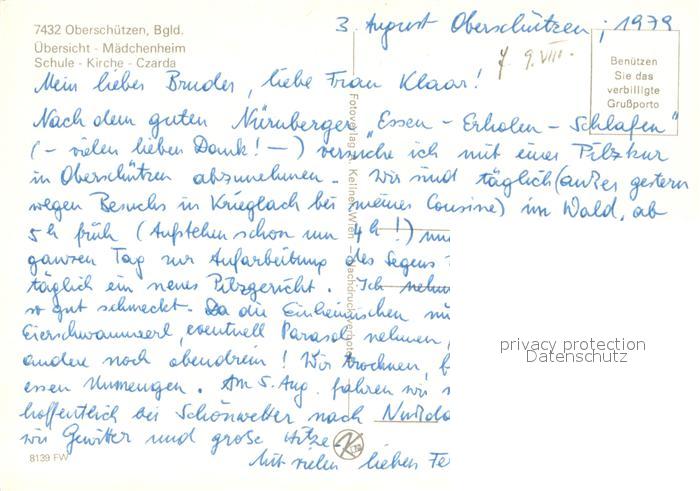 7432 Oberschützen, Bgld.
Übersicht - Mädchenheim
Schule - Kirche - Czarda
3. August Oberschützen, 1979
9. VIII.
Benützen
Sie das
verbilligte
Grußporto
Mein lieber Bruder, liebe Frau Klaar!
Nach dem guten Nürnberger „Essen - Erholen - Schlafen"
(- vielen lieben Dank! -) versuche ich mit einer Pilzkur
in Oberschützen abzunehmen. Wir sind täglich (außer gestern
wegen Besuchs in Krieglach bei meiner Cousine) im Wald, ab
5h früh (Aufstehen schon um 4h!) und
ganzen Tag zur Aufarbeitung des Segens
täglich ein neues Pilzgericht. Ich nehm
so gut schmeckt. Da die Einheimischen nu
Eierschwammerl, eventuell Parasol nehmen,
andere noch obendrein! Wir trocknen,
essen Unmengen. Am 5. Aug. fahren wir
hoffentlich bei Schönwetter nach
wir Gewitter und große Hitze.
Mit vielen lieben
Fotoverlag A. Kellner, Wien - Nachdruck verboten
8139 FW
K
privacy protection
Datenschutz